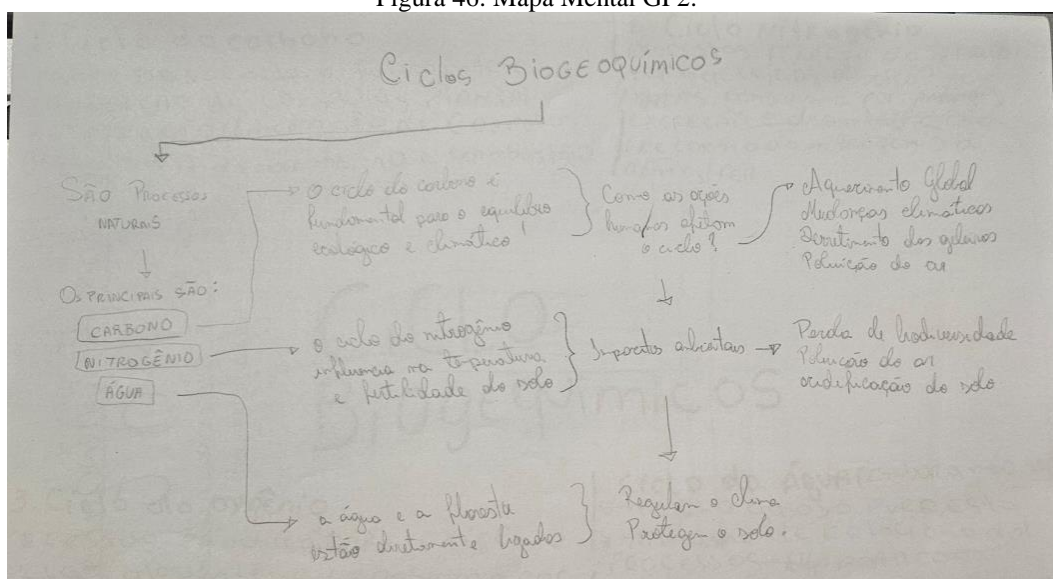 Figura 46: Mapa Mental GP2.
Ciclos BIOGEOQUÍMICOS
SÃO PROCESSOS
NATURAIS
OS PRINCIPAIS SÃO:
CARBONO
NITROGÊNIO
ÁGUA
O ciclo do carbono é
fundamental para o equilíbrio
ecológico e climático!
Como as ações
humanas afetam
o ciclo?
Aquecimento Global
Mudanças climáticas
Derretimento das geleiras
Poluição do ar
o ciclo do nitrogênio
influencia na temperatura
e fertilidade do solo
Impactos ambientais
Perda de biodiversidade
Poluição do ar
acidificação do solo
a água e a floresta
estão diretamente ligados
Regulam o clima
Protegem o solo.